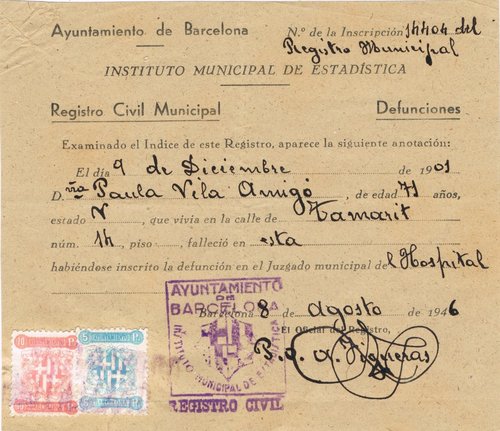 Ayuntamiento de Barcelona
N.º de la Inscripción 14404 del
Registro Municipal
INSTITUTO MUNICIPAL DE ESTADÍSTICA
Registro Civil Municipal
Defunciones
Examinado el Indice de este Registro, aparece la siguiente anotación:
El día 9 de Diciembre de 1901
D.ña Paula Vila Amigó, de edad 71 años,
estado V, que vivía en la calle de Tamarit
núm. 14, piso, falleció en esta
habiéndose inscrito la defunción en el Juzgado municipal del Hospital
Barcelona 8 de agosto de 1946
El Oficial del Registro,
P.o. A. Figueras
AYUNTAMIENTO
DE
BARCELONA
INSTITUTO MUNICIPAL DE ESTADISTICA
REGISTRO CIVIL
10 PTS
5 PTS